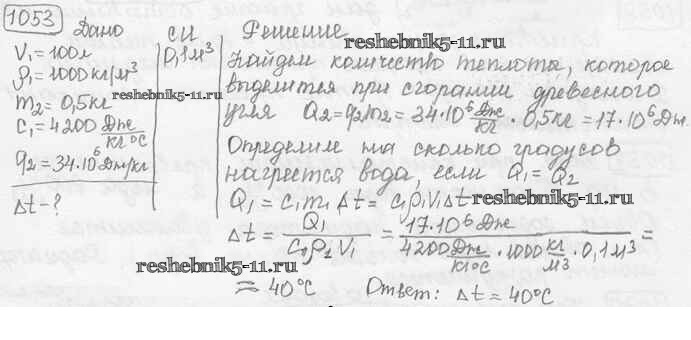 1053 Дано
V₁=100л
ρ₁=1000кг/м³
m₂=0,5кг
c₁=4200 Дж/кг°С
q₂=34·10⁶Дж/кг
Δt-?
СИ
0,1м³
Решение
reshebnik5-11.ru
Найдем количество теплоты, которое
выделится при сгорании древесного
reshebnik5-11.ru
угля Q₂=q₂m₂=34·10⁶ Дж/кг · 0,5кг=17·10⁶Дж.
Определим на сколько градусов
нагреется вода, если Q₁=Q₂
Q₁=c₁m₁Δt=c₁ρ₁V₁Δt
reshebnik5-11.ru
Δt = Q₁/c₁ρ₂V₁ = 17·10⁶Дж/4200 Дж/кг°С · 1000 кг/м³ · 0,1м³ =
reshebnik5-11.ru
≈ 40°С Ответ: Δt≈40°С